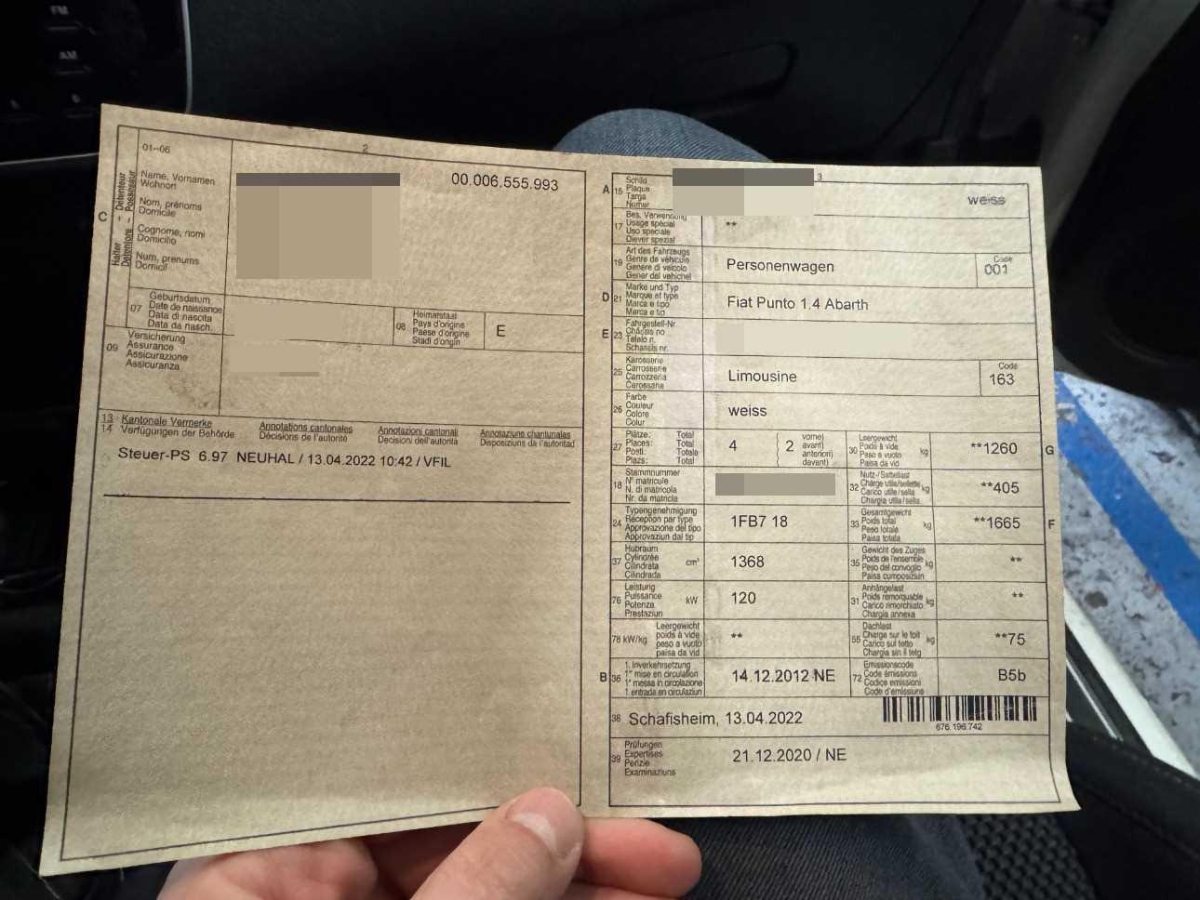 FM
AM
01–06
2
Halter
Détenteur
Detentore
Possessur
C
Name, Vornamen
Wohnort
Nom, prénoms
Domicile
Cognome, nomi
Domicilio
Num, prenums
Domicil
00.006.555.993
07
Geburtsdatum
Date de naissance
Data di nascita
Data da nasch.
08
Heimatstaat
Pays d'origine
Paese d'origine
Stadi d'origin
E
09
Versicherung
Assurance
Assicurazione
Assicuranza
13
14
Kantonale Vermerke
Verfügungen der Behörde
Annotations cantonales
Décisions de l'autorité
Annotazioni cantonali
Decisioni dell'autorità
Annotaziuns chantunalas
Disposiziuns da l'autoritad
Steuer-PS 6.97 NEUHAL / 13.04.2022 10:42 / VFIL
3
A
15
Schild
Plaque
Targa
Numer
weiss
17
Bes. Verwendung
Usage spécial
Uso speciale
Diever spezial
**
19
Art des Fahrzeugs
Genre de véhicule
Genere di veicolo
Gener del vehichel
Personenwagen
Code
001
D
21
Marke und Typ
Marque et type
Marca e tipo
Marca e tip
Fiat Punto 1.4 Abarth
E
23
Fahrgestell-Nr.
Châssis no
Telaio n.
Schassis nr.
25
Karosserie
Carrosserie
Carrozzeria
Carossaria
Limousine
Code
163
26
Farbe
Couleur
Colore
Colur
weiss
27
Plätze: Total
Places: Total
Posti: Totale
Plazs: Total
4
2
vorne)
avant)
anteriori)
davant)
30
Leergewicht
Poids à vide
Peso a vuoto
Paisa da vid
kg
**1260
G
18
Stammnummer
N° matricule
N. di matricola
Nr. da matricla
32
Nutz-/Sattellast
Charge utile/sellette
Carico utile/sella
Chargia utila/sella
kg
**405
24
Typengenehmigung
Réception par type
Approvazione del tipo
Approvaziun dal tip
1FB7 18
33
Gesamtgewicht
Poids total
Peso totale
Paisa totala
kg
**1665
F
37
Hubraum
Cylindrée
Cilindrata
Cilindrada
cm³
1368
35
Gewicht des Zuges
Poids de l'ensemble
Peso del convoglio
Paisa cumposiziun
kg
**
76
Leistung
Puissance
Potenza
Prestaziun
kW
120
31
Anhängelast
Poids remorquable
Carico rimorchiato
Chargia annexa
kg
**
78 kW/kg
Leergewicht
poids à vide
peso a vuoto
paisa da vid
**
55
Dachlast
Charge sur le toit
Carico sul tetto
Chargia sin il tetg
kg
**75
B
36
1. Inverkehrsetzung
1re mise en circulation
1a messa in circolazione
1. entrada en circulaziun
14.12.2012 NE
72
Emissionscode
Code émissions
Codice emissioni
Code d'emissiuns
B5b
38
Schafisheim, 13.04.2022
676.196.742
39
Prüfungen
Expertises
Perizie
Examinaziuns
21.12.2020 / NE